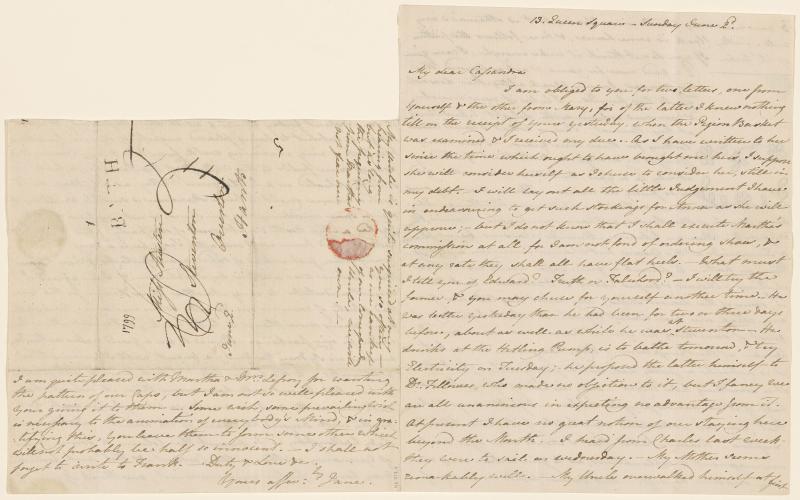 13. Queen Square - Sunday June 2d.
My dear Cassandra
I am obliged to you for two letters, one from
Yourself & the other from Mary, for of the latter I knew nothing
till on the receipt of yours yesterday, when the Pigeon Basket
was examined & I received my due. - As I have written to her
since the time which ought to have brought me hers, I suppose
she will consider herself as I chuse to consider her, still in
my debt. - I will lay out all the little Judgement I have
in endeavouring to get such stockings for Anna as she will
approve; - but I do not know that I shall execute Martha's
commission at all, for I am not fond of ordering shoes, &
at any rate they shall all have flat heels. - What must
I tell you of Edward? - Truth or Falsehood? - I will try the
former, & you may chuse for yourself another time. - He
was better yesterday than he had been for two or three days
before, about as well as while he was at Steventon - He
drinks at the Hetling Pump, is to bathe tomorrow, & try
Electricity on Tuesday; - he proposed the latter himself to
Dr. Fellowes, who made no objection to it, but I fancy we
are all unanimous in expecting no advantage from it.
At present I have no great notion of our staying here
beyond the Month. - I heard from Charles last week -
they were to sail on wednesday. - My Mother seems
remarkably well. - My Uncle overwalked himself at first
BATH
Miss Austen
Steventon
Overton
Hants
June 2d
1799
My Uncle is quite surprised at
my hearing from you so often
but as long as we can keep
the frequency of our correspondence
from Martha's Uncle, we will
not fear our own. -
I am quite pleased with Martha & Mrs. Lefroy for wanting
the pattern of our Caps, but I am not so well pleased with
Your giving it to them - Some wish, some prevailing Wish
is necessary to the animation of everybody's Mind, & in gra-
tifying this, you leave them to form some other which
will not probably be half so innocent. - I shall not
forget to write to Frank. - Duty & Love &c
Yours affec:ly Jane.